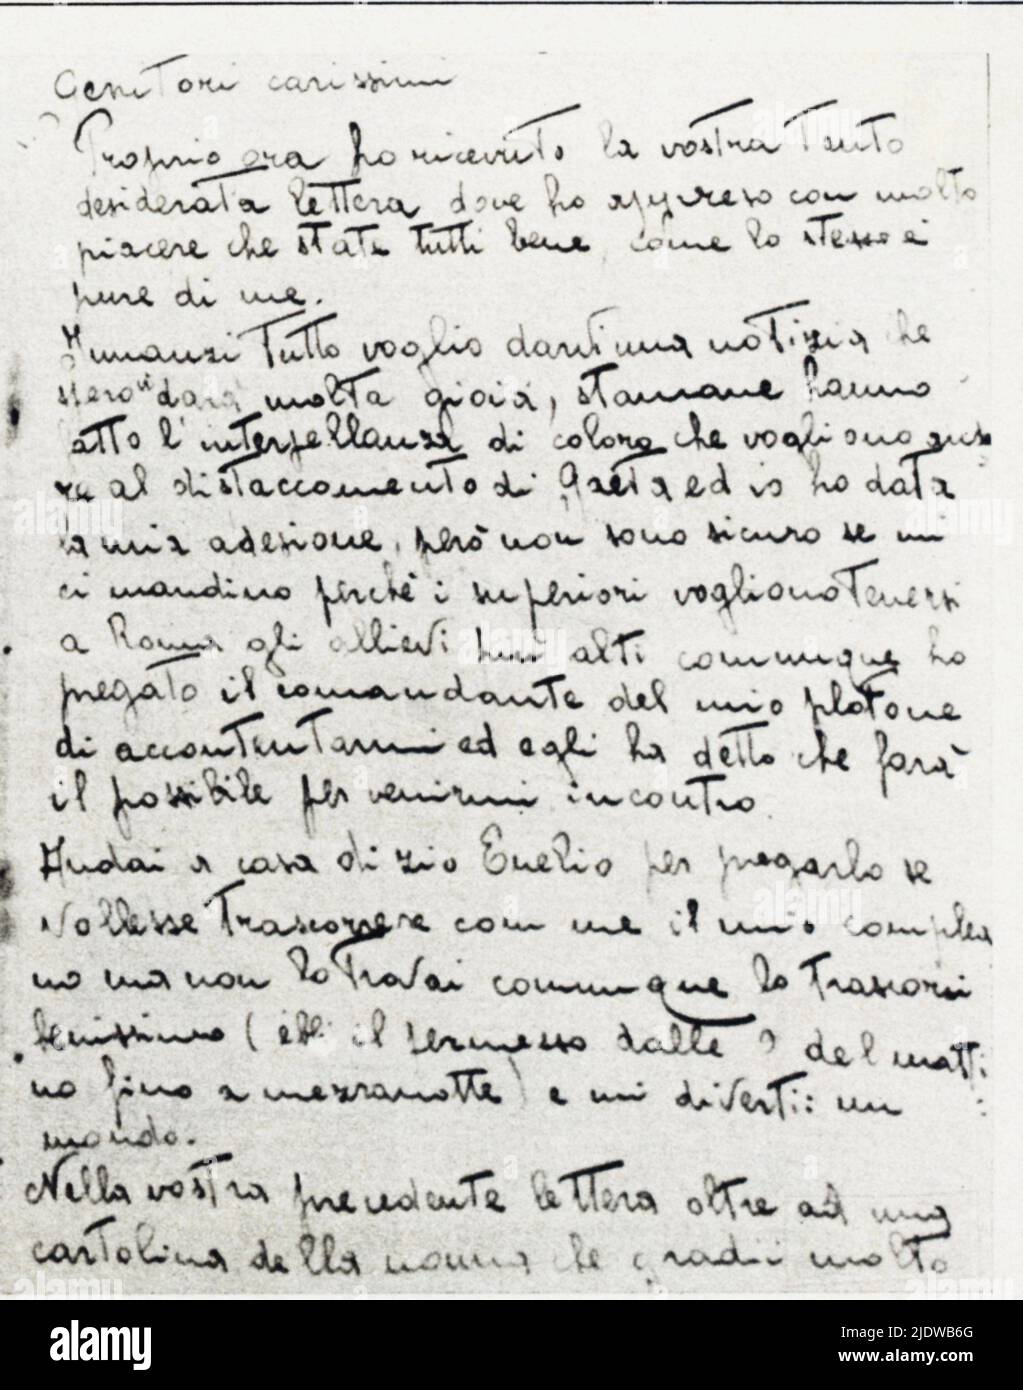 Genitori carissimi
Proprio ora ho ricevuto la vostra tanto
desiderata lettera dove ho appreso con molto
piacere che state tutti bene, come lo stesso è
pure di me.
Innanzi tutto voglio darvi una notizia che
spero vi darà molta gioia, stamane hanno
fatto l'interpellanza di coloro che vogliono anda
re al distaccamento di Gaeta ed io ho data
la mia adesione, però non sono sicuro se mi
ci mandino perchè i superiori vogliono tenersi
a Roma gli allievi più alti comunque ho
pregato il comandante del mio plotone
di accontentarmi ed egli ha detto che farà
il possibile per venirmi incontro.
Andai a casa di zio Enelio per pregarlo se
volesse trascorrere con me il mio complea
no ma non lo trovai comunque lo trascorsi
benissimo (ebbi il permesso dalle 9 del matti
no fino a mezzanotte) e mi divertii un
mondo.
Nella vostra precedente lettera oltre ad una
cartolina della nonna che gradii molto
alamy
Image ID: 2JDWB6G
www.alamy.com